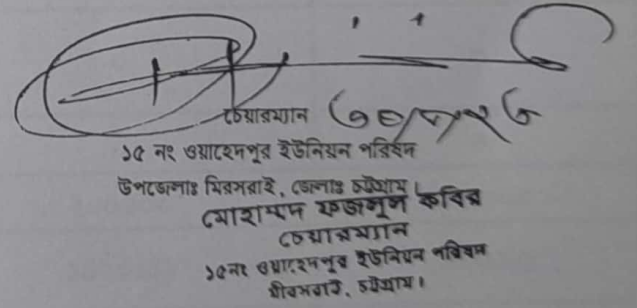 চেয়ারম্যান
১৫ নং ওয়াহেদপুর ইউনিয়ন পরিষদ
উপজেলাঃ মিরসরাই, জেলাঃ চট্টগ্রাম।
মোহাম্মদ ফজলুল কবির
চেয়ারম্যান
১৫নং ওয়াহেদপুর ইউনিয়ন পরিষদ
মীরসরাই, চট্টগ্রাম।